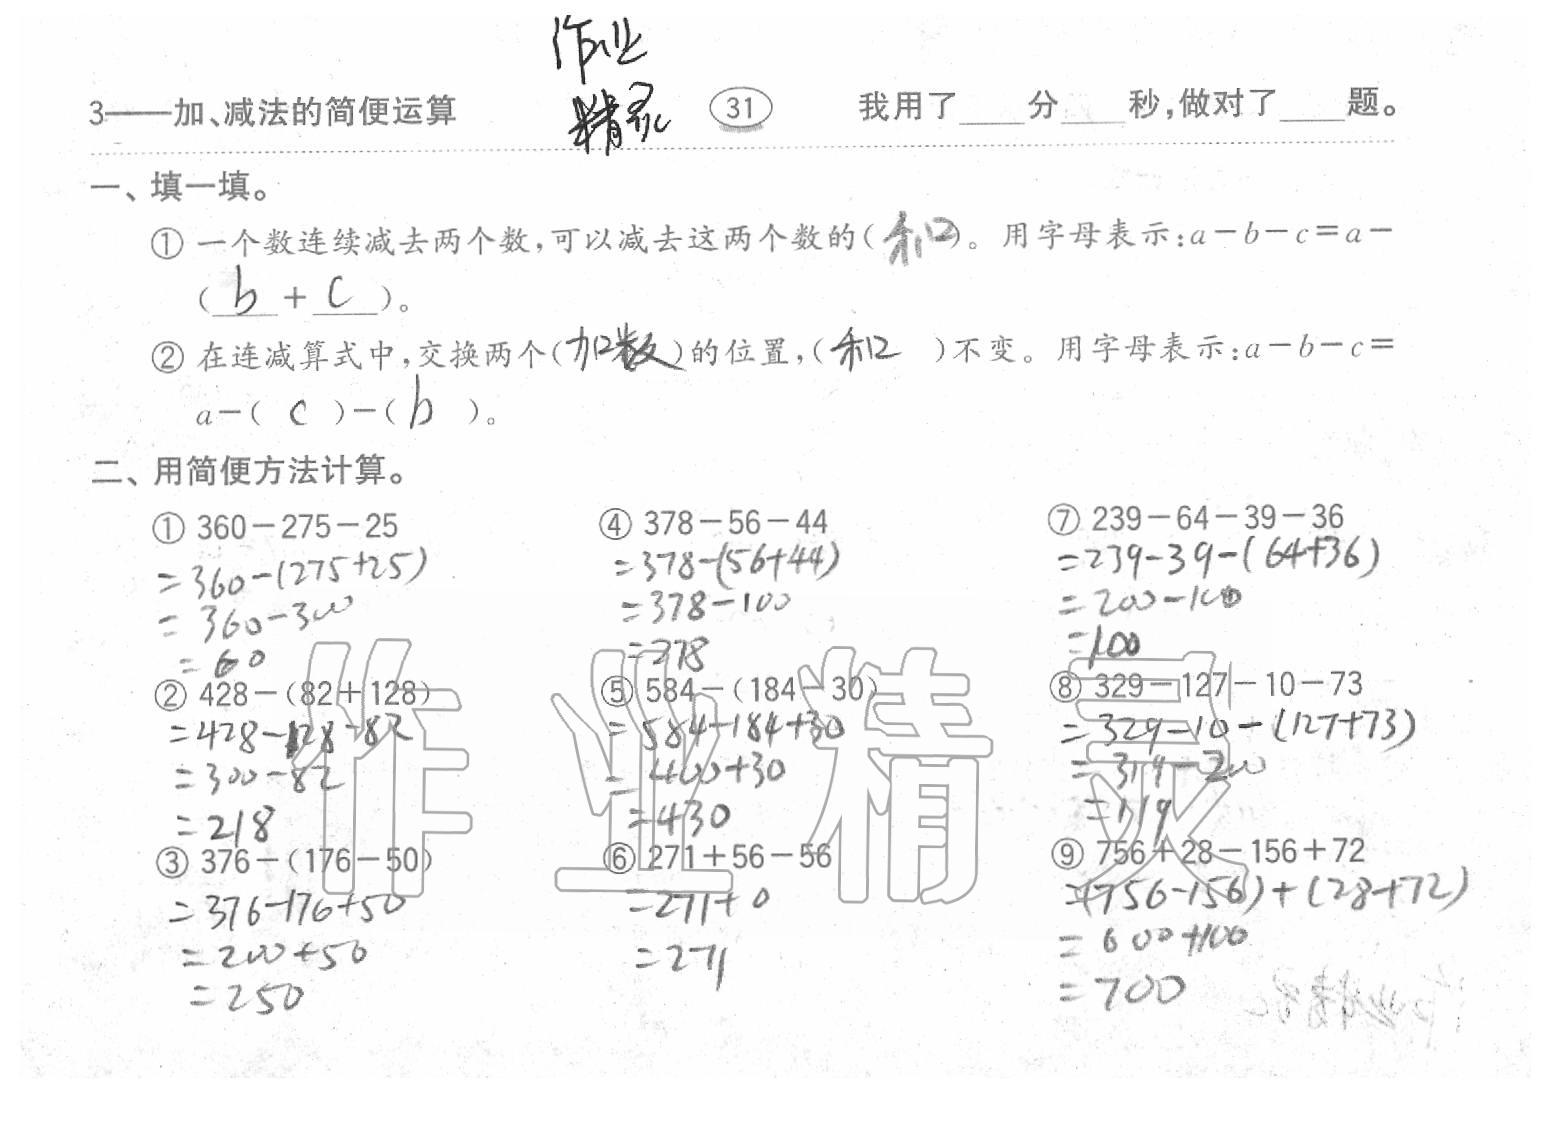 作业
精灵
3——加、减法的简便运算 31 我用了____分____秒,做对了____题。
一、填一填。
① 一个数连续减去两个数,可以减去这两个数的(和)。用字母表示:a-b-c=a-
(b+c)。
② 在连减算式中,交换两个(加数)的位置,(和)不变。用字母表示:a-b-c=
a-(c)-(b)。
二、用简便方法计算。
① 360-275-25
=360-(275+25)
=360-300
=60
② 428-(82+128)
=428-128-82
=300-82
=218
③ 376-(176-50)
=376-176+50
=200+50
=250
④ 378-56-44
=378-(56+44)
=378-100
=278
⑤ 584-(184-30)
=584-184+30
=400+30
=430
⑥ 271+56-56
=271+0
=271
⑦ 239-64-39-36
=239-39-(64+36)
=200-100
=100
⑧ 329-127-10-73
=329-10-(127+73)
=319-200
=119
⑨ 756+28-156+72
=(756-156)+(28+72)
=600+100
=700
作业精灵